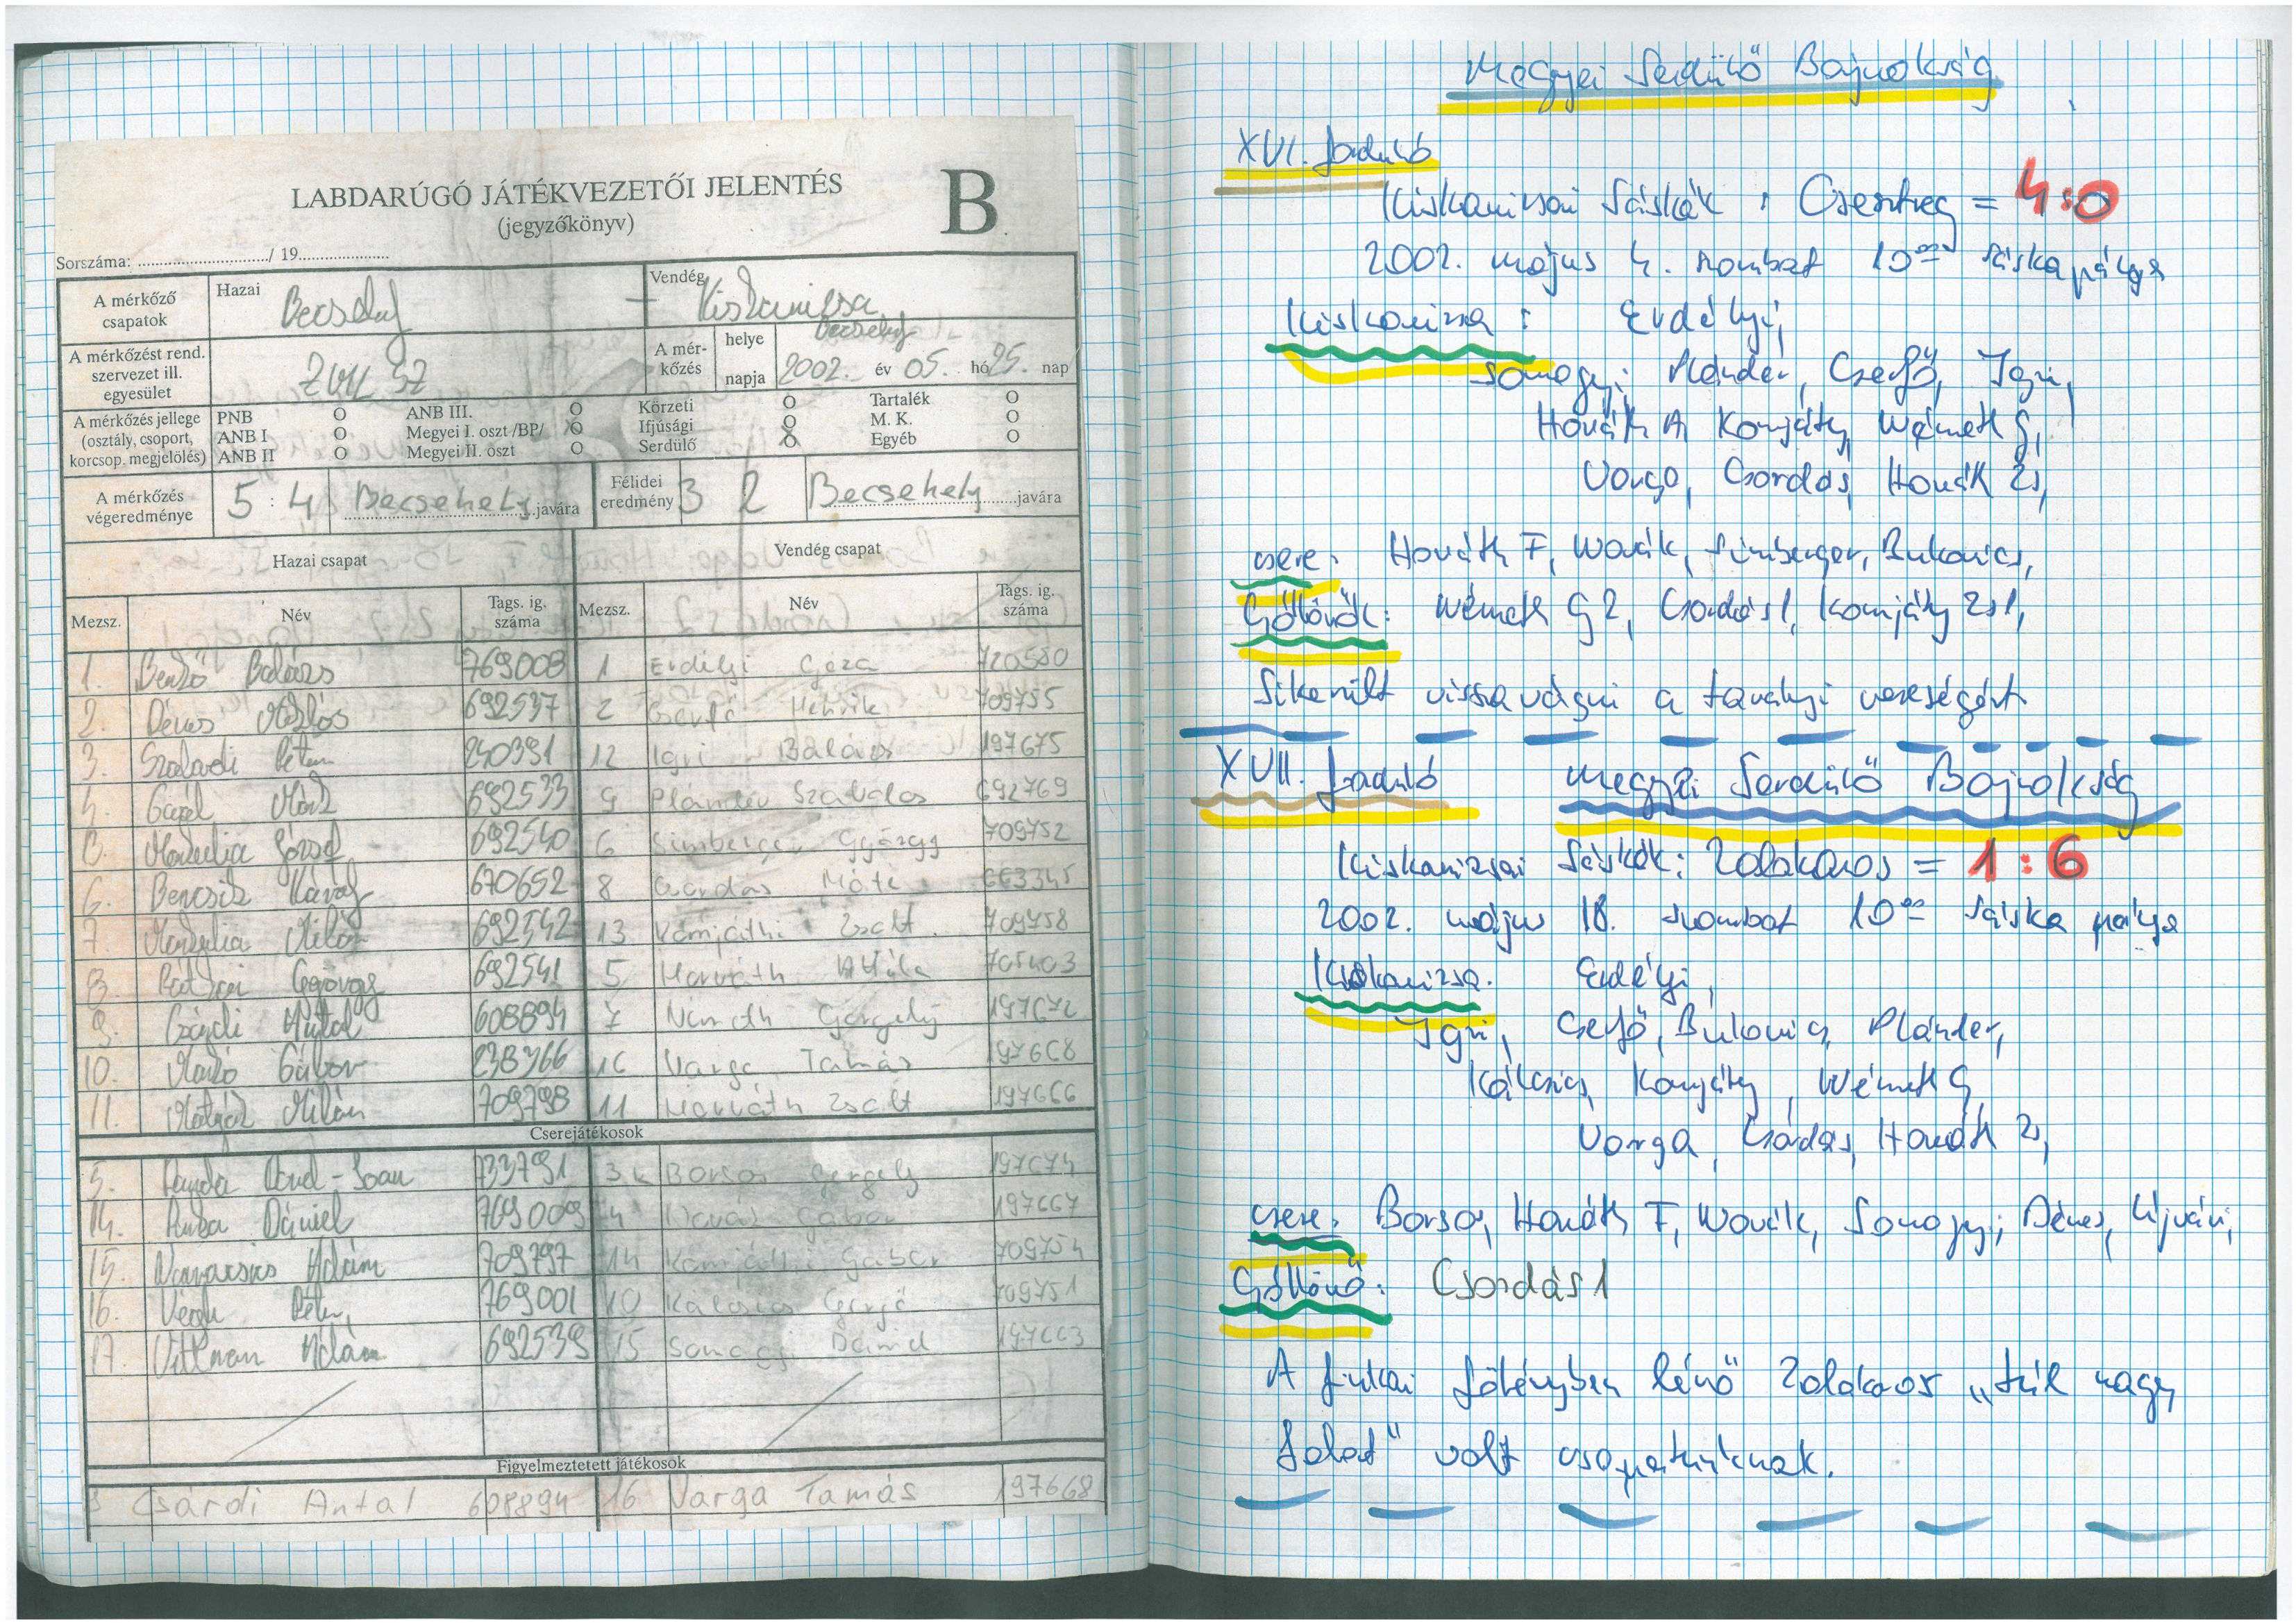 LABDARÚGÓ JÁTÉKVEZETŐI JELENTÉS
(jegyzőkönyv)
B
Sorszáma: ............................/ 19....................
A mérkőző csapatok
Hazai Becsehely
Vendég Kiskanizsa
A mérkőzést rend. szervezet ill. egyesület
A mérkőzés helye Becsehely
napja 2002. év 05. hó 25. nap
A mérkőzés jellege (osztály, csoport, korcsop. megjelölés)
PNB O ANB III. O Körzeti O Tartalék O
ANB I O Megyei I. oszt /BP/ O Ifjúsági O M. K. O
ANB II O Megyei II. oszt O Serdülő O Egyéb O
A mérkőzés végeredménye 5 : 4 Becsehely javára
Félidei eredmény 3 2 Becsehely javára
Hazai csapat Vendég csapat
Mezsz. Név Tags. ig. száma Mezsz. Név Tags. ig. száma
1. Balázs 769008 1 Erdélyi Géza 720580
2. Dénes Miklós 692537 2 Cserfő Henrik 709755
3. Szalardi Péter 240391 12 Igri Balázs 197675
4. 692533 9 Plánder Szabolcs 692769
József 692540 6 Simberger György 709752
6. Bencsik Károly 670652 8 Csordás Máté 663345
7. Milán 692542 13 Komjáthi Zsolt 709758
8. György 692541 5 Horváth Attila 705403
9. Csárdi Antal 608894 7 Németh Gergely 197672
10. Gábor 238366 16 Varga Tamás 197668
11. Milán 709798 11 Horváth Zsolt 197666
Cserejátékosok
5. 733791 3 Borsos Gergely 197674
14. Dániel 769009 4 Gábor 197667
15. Ádám 709797 14 Komjáthi Gábor 709754
16. Végh Péter 769001 10 Kálcsics Gergő 709751
17. Vittman Ádám 692539 15 Somogyi Dániel 197663
Figyelmeztetett játékosok
Csárdi Antal 608894 16 Varga Tamás 197668
Megyei Serdülő Bajnokság
XVI. forduló
Kiskanizsai Sáskák : Csesztreg = 4:0
2002. május 4. szombat 10⁰⁰ Sáska pálya
Kiskanizsa : Erdélyi,
Somogyi, Plánder, Cserfő, Igri,
Horváth A, Komjáty, Németh G,
Varga, Csordás, Horváth Zs,
csere: Horváth F, Novák, Simberger, Bukovics,
Góllövők: Németh G 2, Csordás 1, Komjáty Zs 1,
Sikerült visszavágni a tavalyi vereségért
XVII. forduló Megyei Serdülő Bajnokság
Kiskanizsai Sáskák : Zalakaros = 1 : 6
2002. május 18. szombat 10⁰⁰ Sáska pálya
Kiskanizsa. Erdélyi,
Igri, Cserfő, Bukovics, Plánder,
Kálcsics, Komjáty, Németh G,
Varga, Csordás, Horváth Zs,
csere: Borsos, Horváth F, Novák, Somogyi, Dénes, Ujvári,
Góllövő: Csordás 1
A fizikai fölényben lévő Zalakaros „túl nagy
falat" volt csapatunknak.